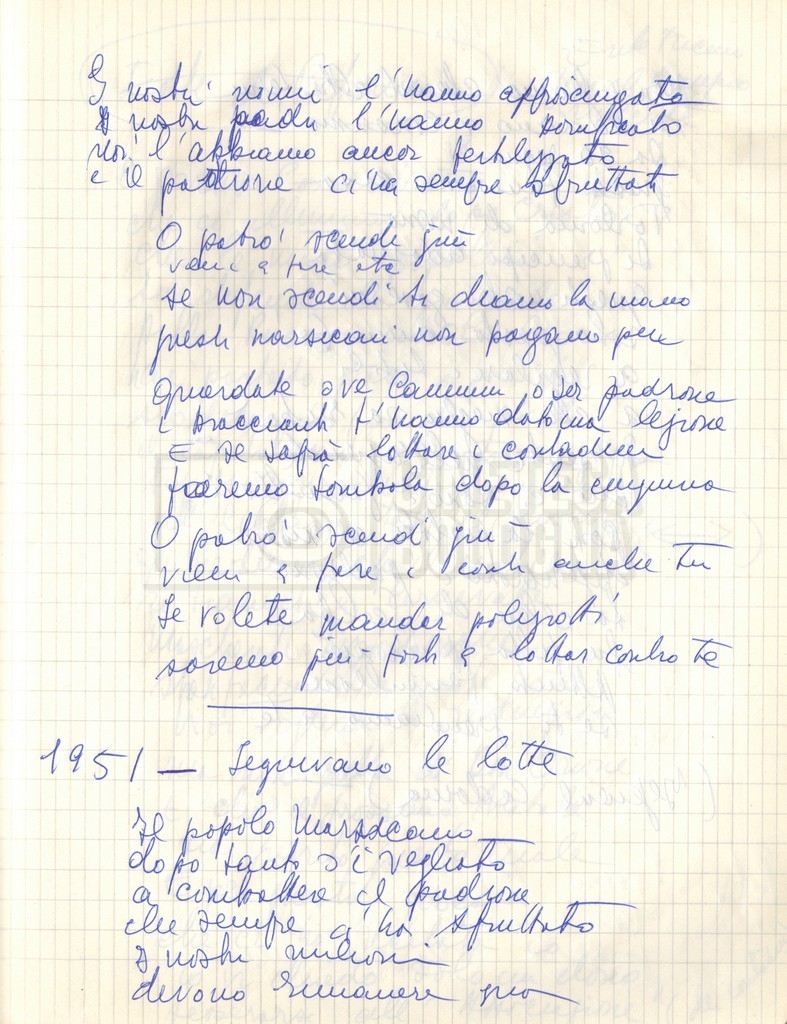 I nostri nonni l'hanno approsciugato
I nostri padri l'hanno bonificato
Noi l'abbiamo ancor fertilizzato
e il padrone ci ha sempre sfruttati
O patró scendi giù
vieni a fare etc
se non scendi ti diamo la mano
questi marsicani non pagano più
Guardate ove Cammini o ser padrone
i braccianti t'hanno dato una lezione
E se saprà lottare i contadini
faaremo tombola dopo la cinquina
O patró scendi giù
vieni a fare i conti anche tu
Se volete mandar poliziotti
saremo più forti a lottar contro te
1951 — Seguivano le lotte
Il popolo Marsicano
dopo tanto s'è vegliato
a combattere il padrone
che sempre c'ha sfruttato
I nostri milioni
devono rimanere qua